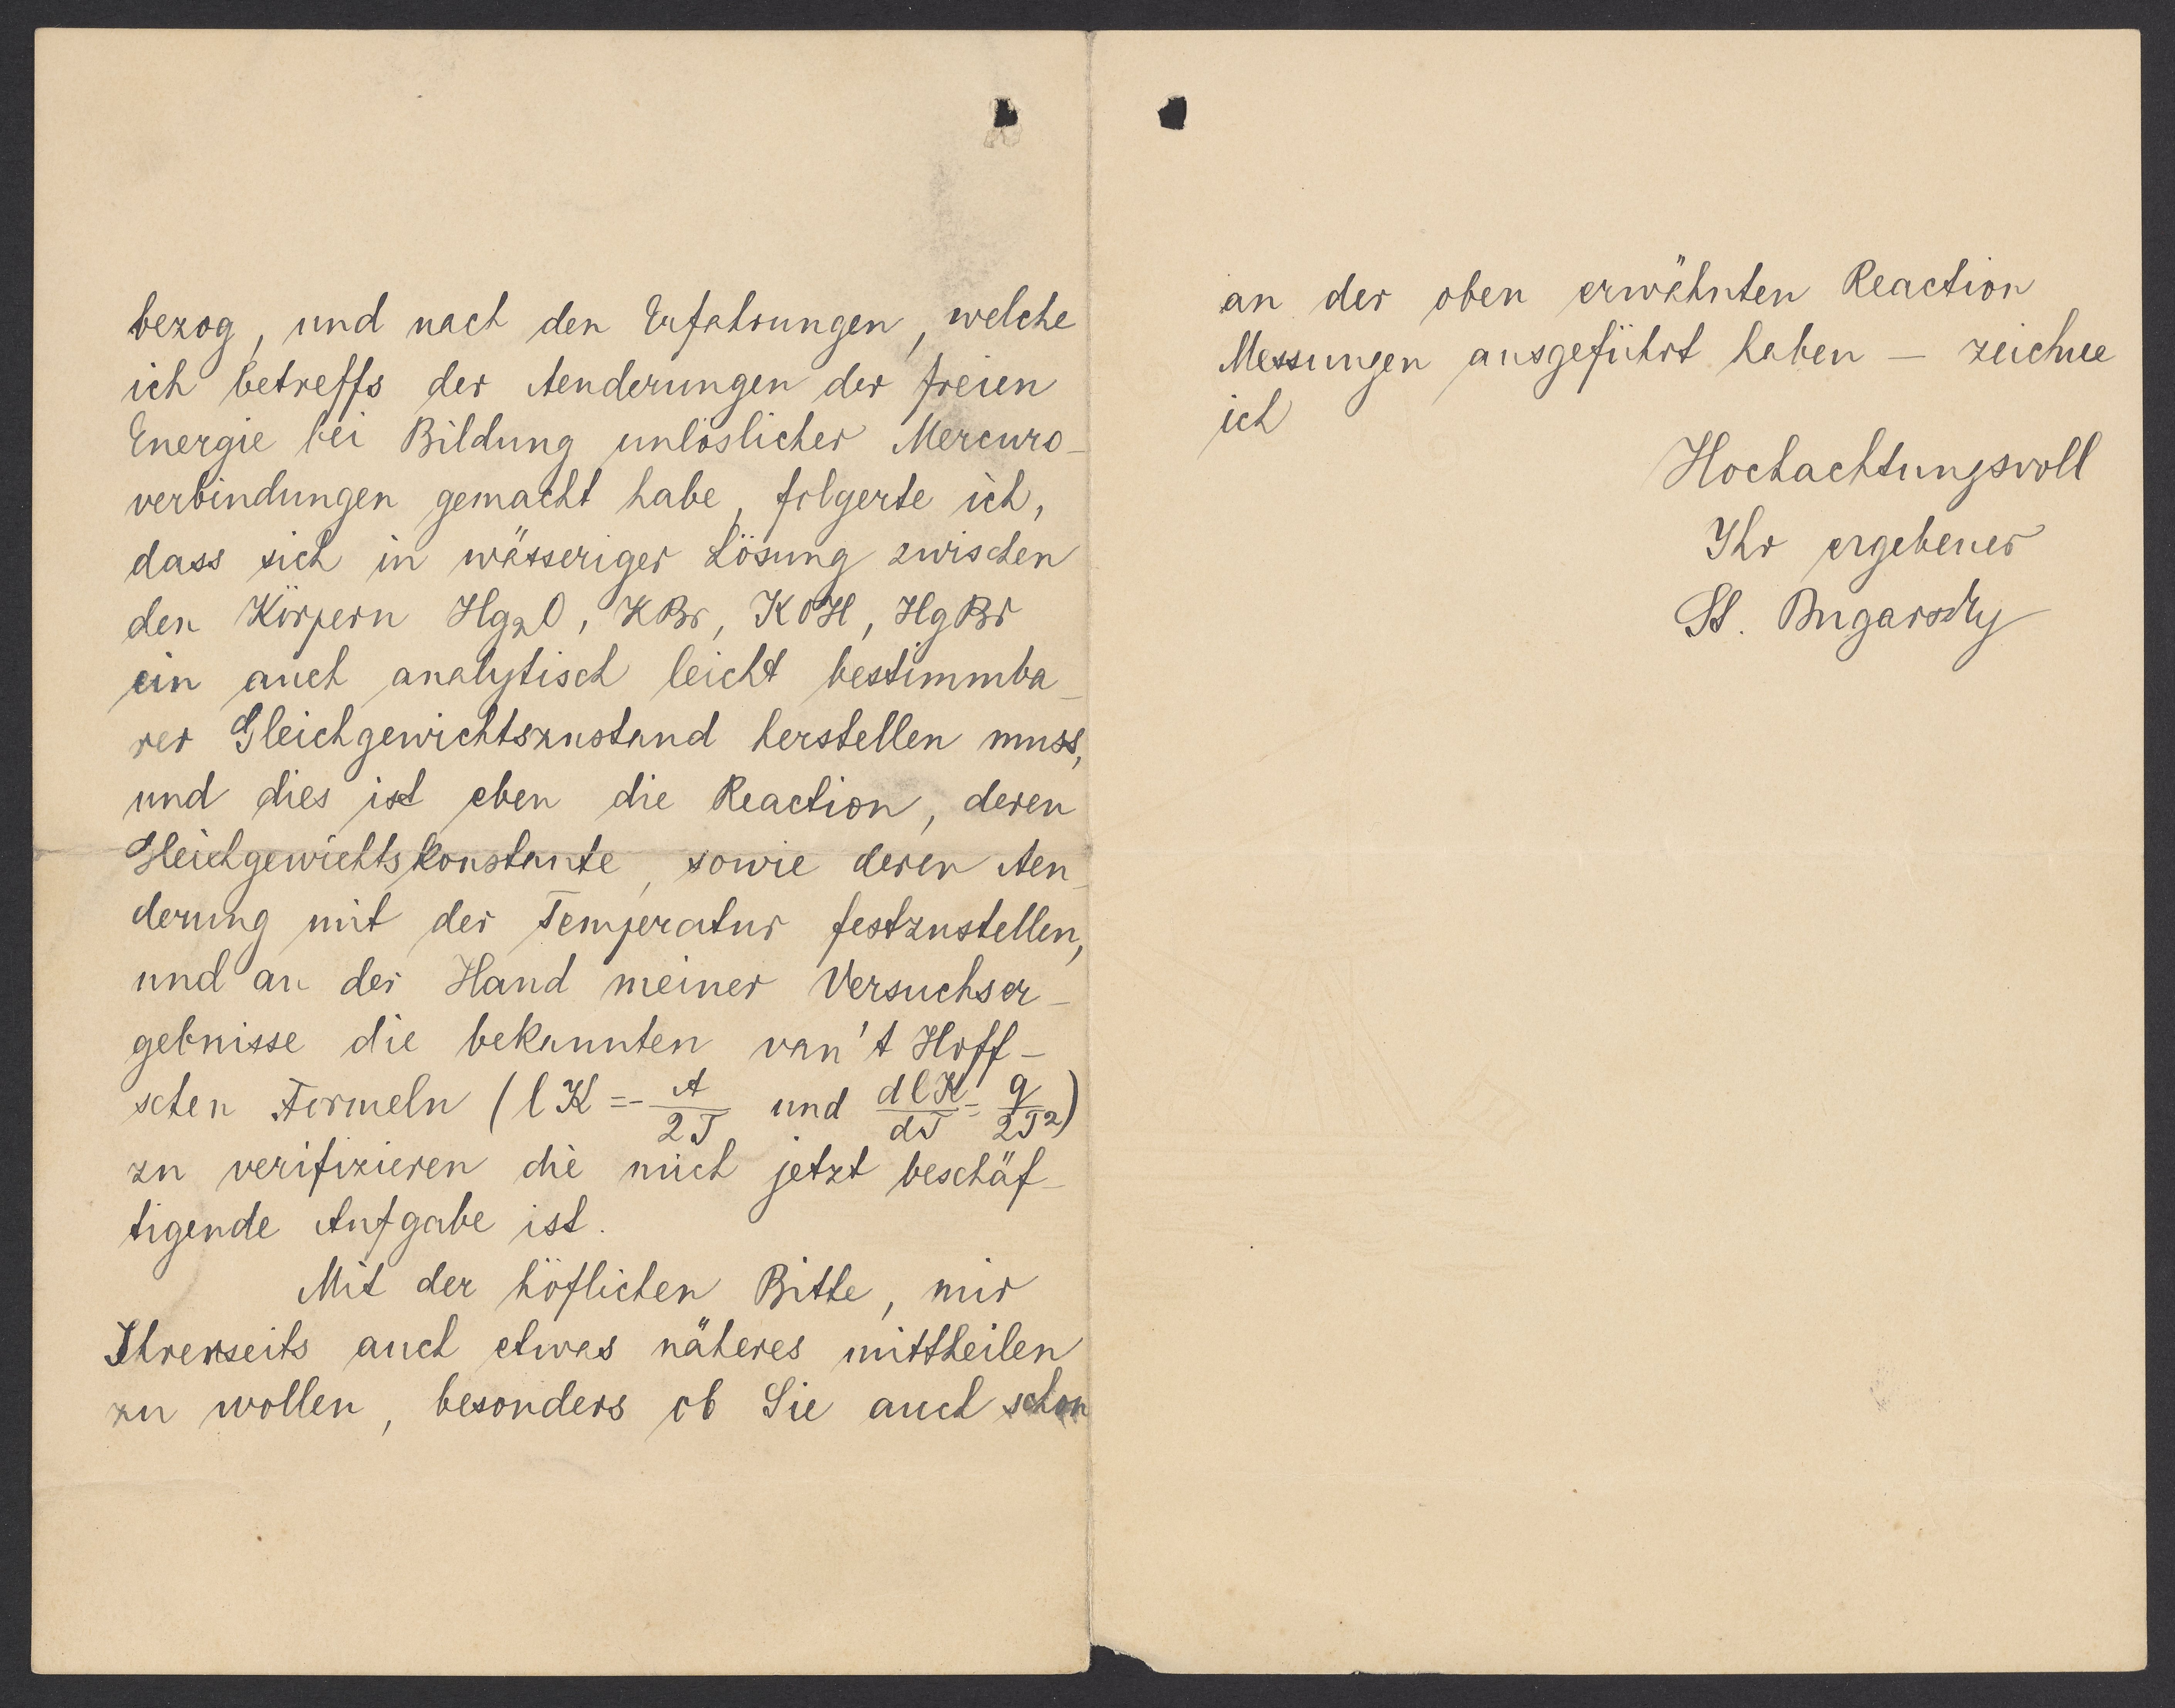 bezog, und nach den Erfahrungen, welche
ich betreffs der Aenderungen der freien
Energie bei Bildung unlöslicher Mercuro-
verbindungen gemacht habe, folgerte ich,
dass sich in wässeriger Lösung zwischen
den Körpern Hg₂O, KBr, KOH, HgBr
ein auch analytisch leicht bestimmba-
rer Gleichgewichtszustand herstellen muss,
und dies ist eben die Reaction, deren
Gleichgewichtskonstante, sowie deren Aen-
derung mit der Temperatur festzustellen,
und an der Hand meiner Versuchser-
gebnisse die bekannten van't Hoff-
schen Formeln (lK = - A/2T und dlK/dT = q/2T²)
zu verifizieren die mich jetzt beschäf-
tigende Aufgabe ist.
Mit der höflichen Bitte, mir
Ihrerseits auch etwas näheres mittheilen
zu wollen, besonders ob Sie auch schon
an der oben erwähnten Reaction
Messungen ausgeführt haben — zeichne
ich
Hochachtungsvoll
Ihr ergebener
St. Bugarszky